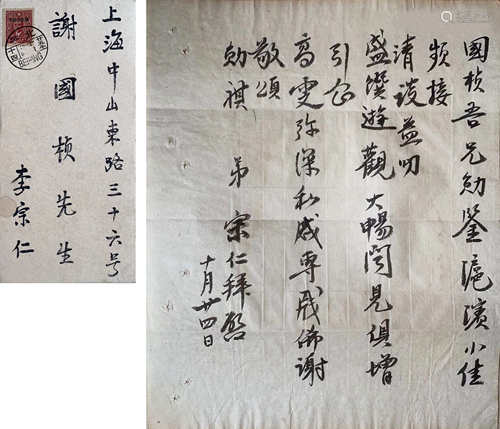 上海中山東路三十六号
謝國楨先生
李宗仁
北平
PEIPING
國楨吾兄勛鋻滬濱小住
頻接
清談益叨
盛饌遊觀大暢聞見俱增
引企
高雯弥深私感專我佈謝
敬頌
勛祺
弟宗仁拜啓
十月廿四日